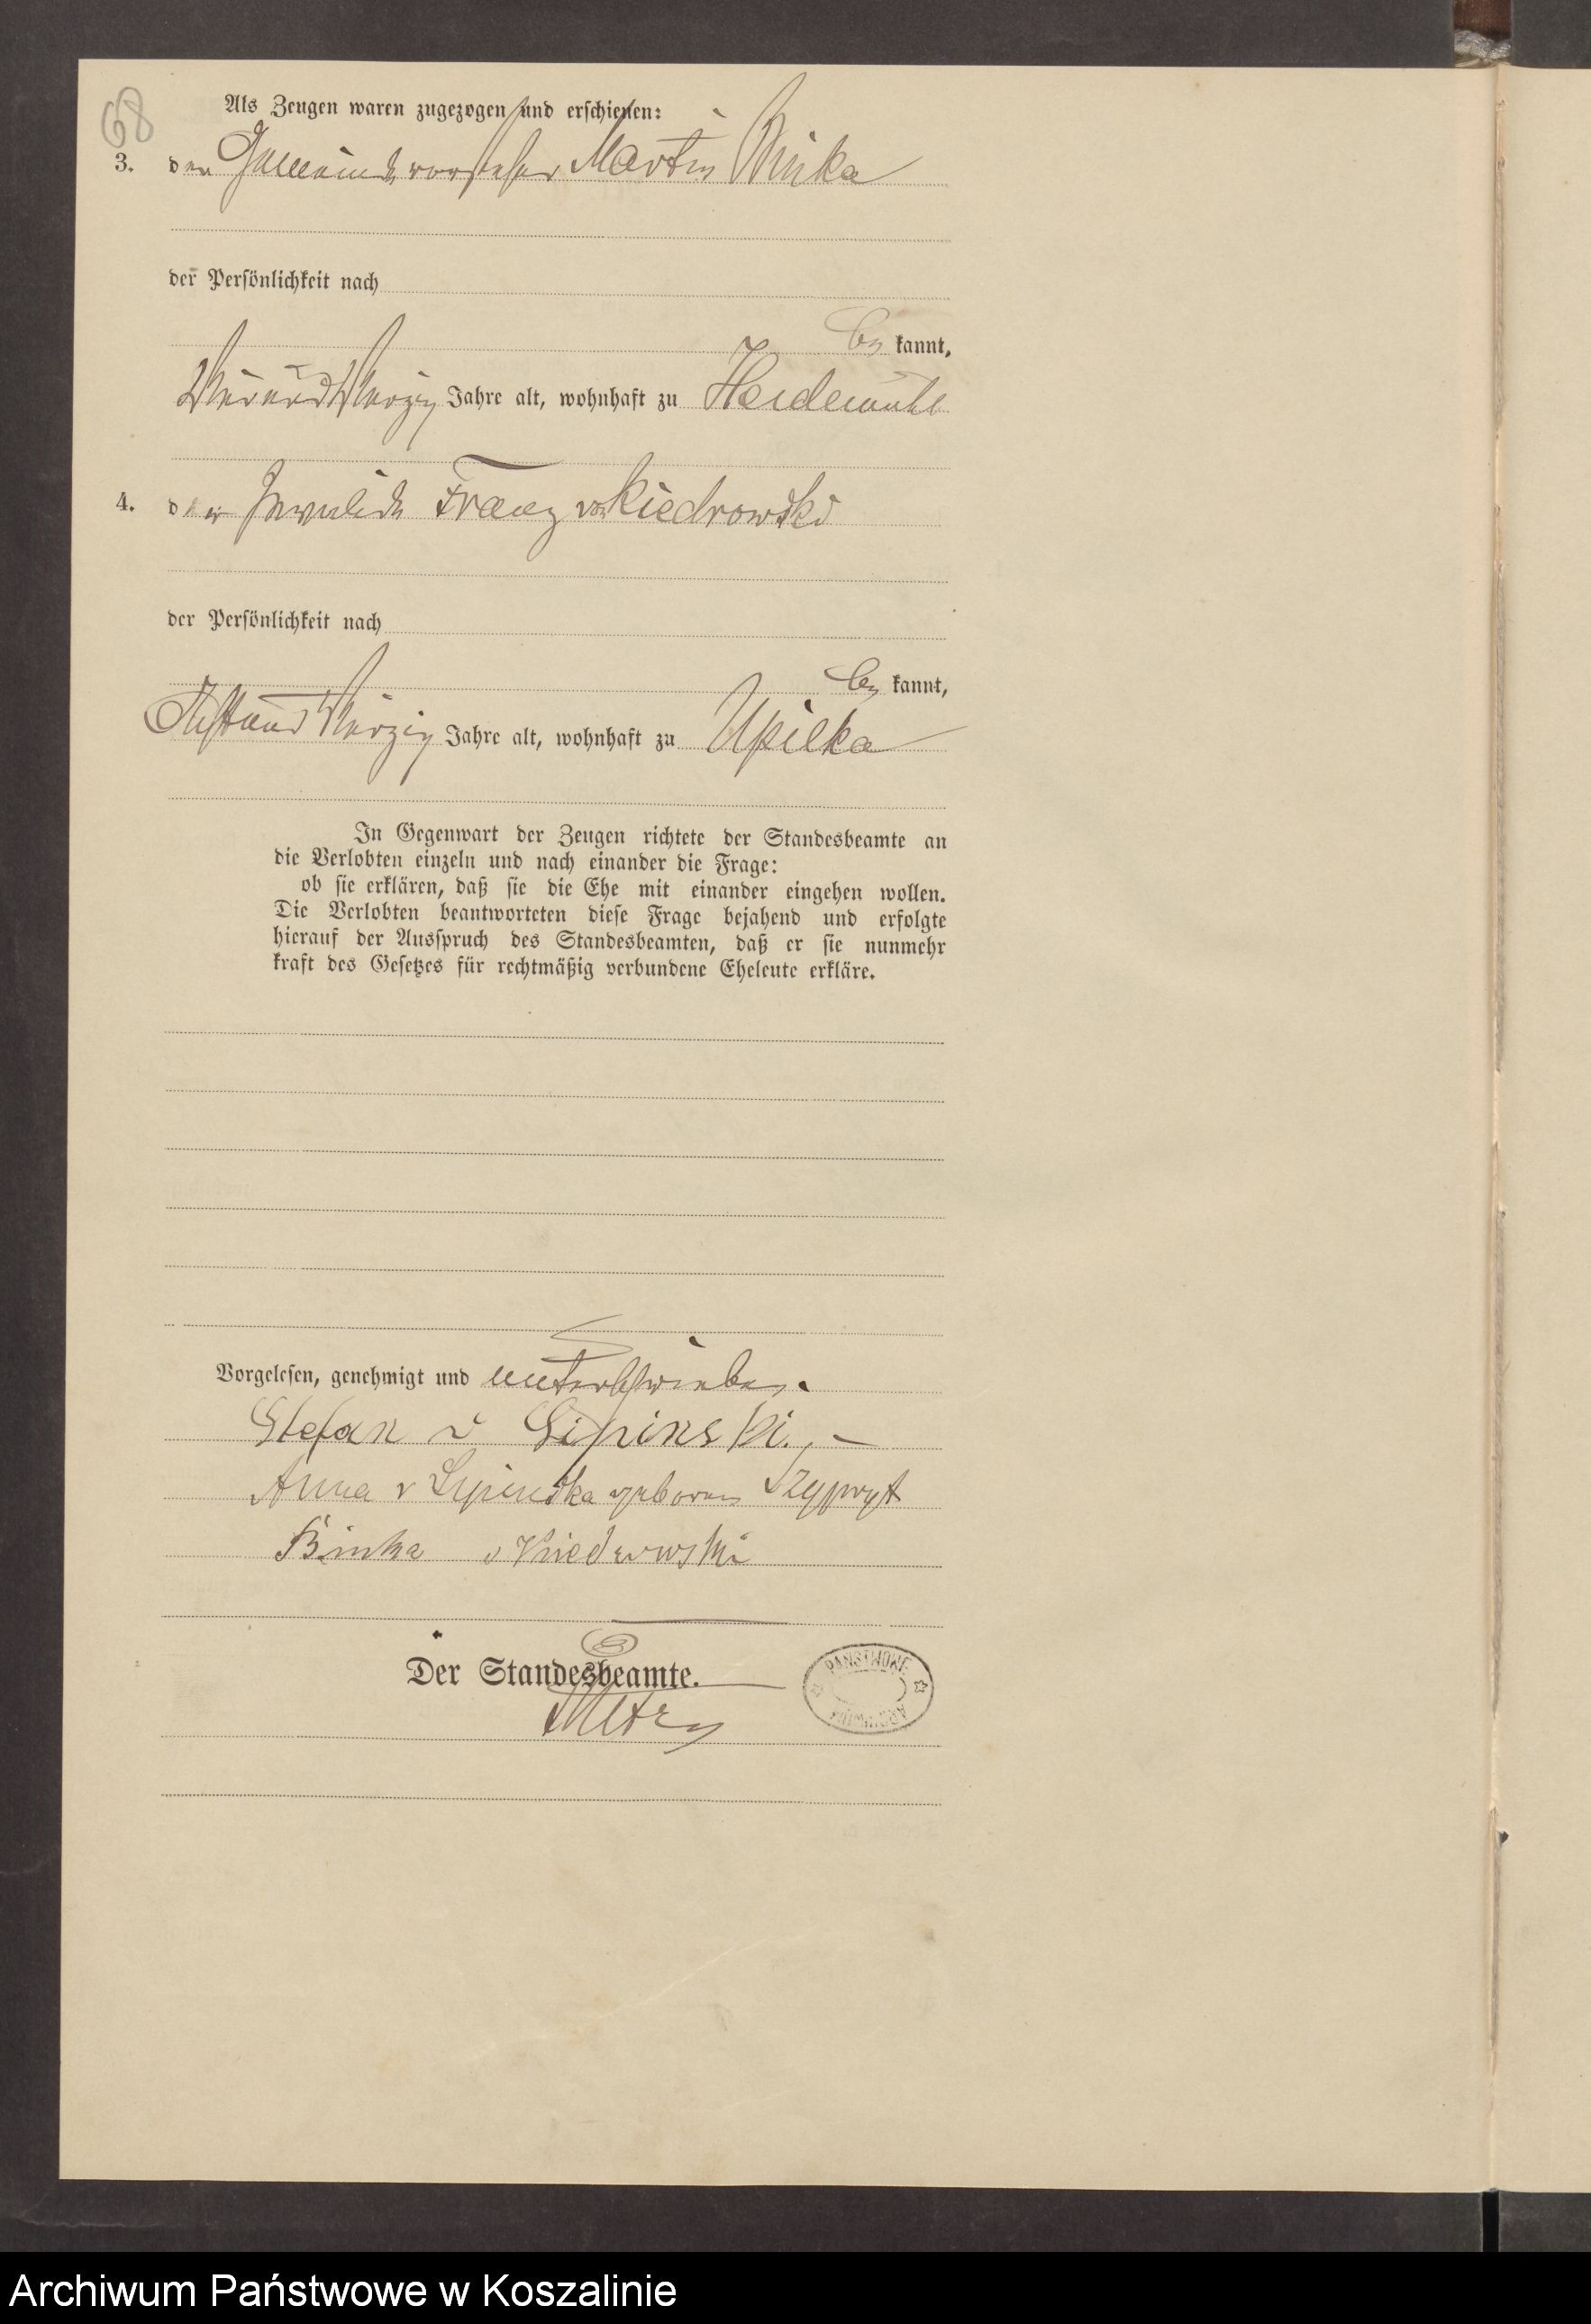 68
Als Zeugen waren zugezogen und erschienen:
3. der Gemeindevorsteher Martin Binka
der Persönlichkeit nach
be kannt,
vierzig Jahre alt, wohnhaft zu Heidemühl
4. der Invalide Franz von Kiedrowski
der Persönlichkeit nach
be kannt,
vierzig Jahre alt, wohnhaft zu Upilka
In Gegenwart der Zeugen richtete der Standesbeamte an
die Verlobten einzeln und nach einander die Frage:
ob sie erklären, daß sie die Ehe mit einander eingehen wollen.
Die Verlobten beantworteten diese Frage bejahend und erfolgte
hierauf der Ausspruch des Standesbeamten, daß er sie nunmehr
kraft des Gesetzes für rechtmäßig verbundene Eheleute erkläre.
Vorgelesen, genehmigt und unterschrieben.
Stefan v Lipinski.
Anna v Lipinska geboren Szypryt
Binka v Kiedrowski
Der Standesbeamte.
PAŃSTWOWE
ARCHIWUM
Archiwum Państwowe w Koszalinie